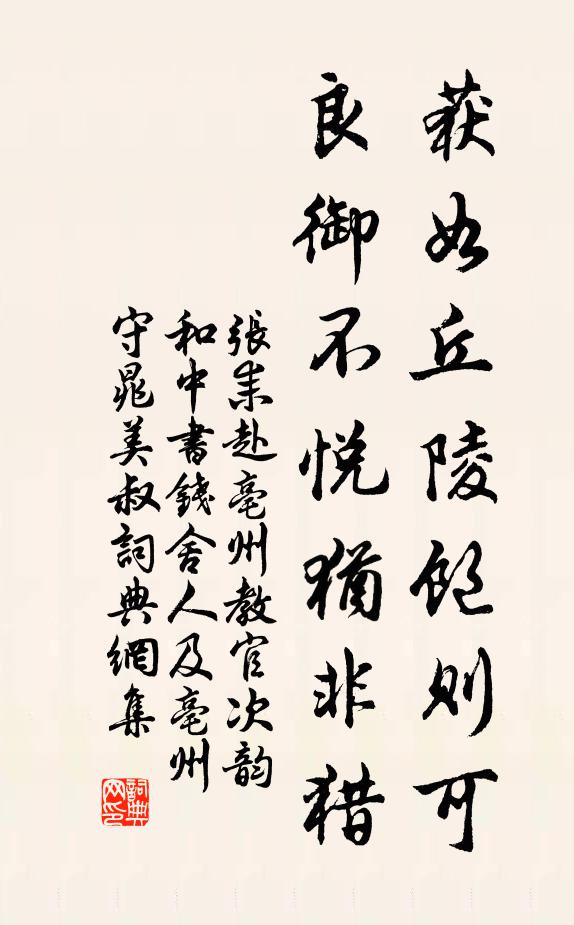 获如丘陵飽则可
良御不悦猶非猎
張耒赴亳州教官次韵
和中書錢舍人及亳州
守晁美叔詞典網集
詞典网印